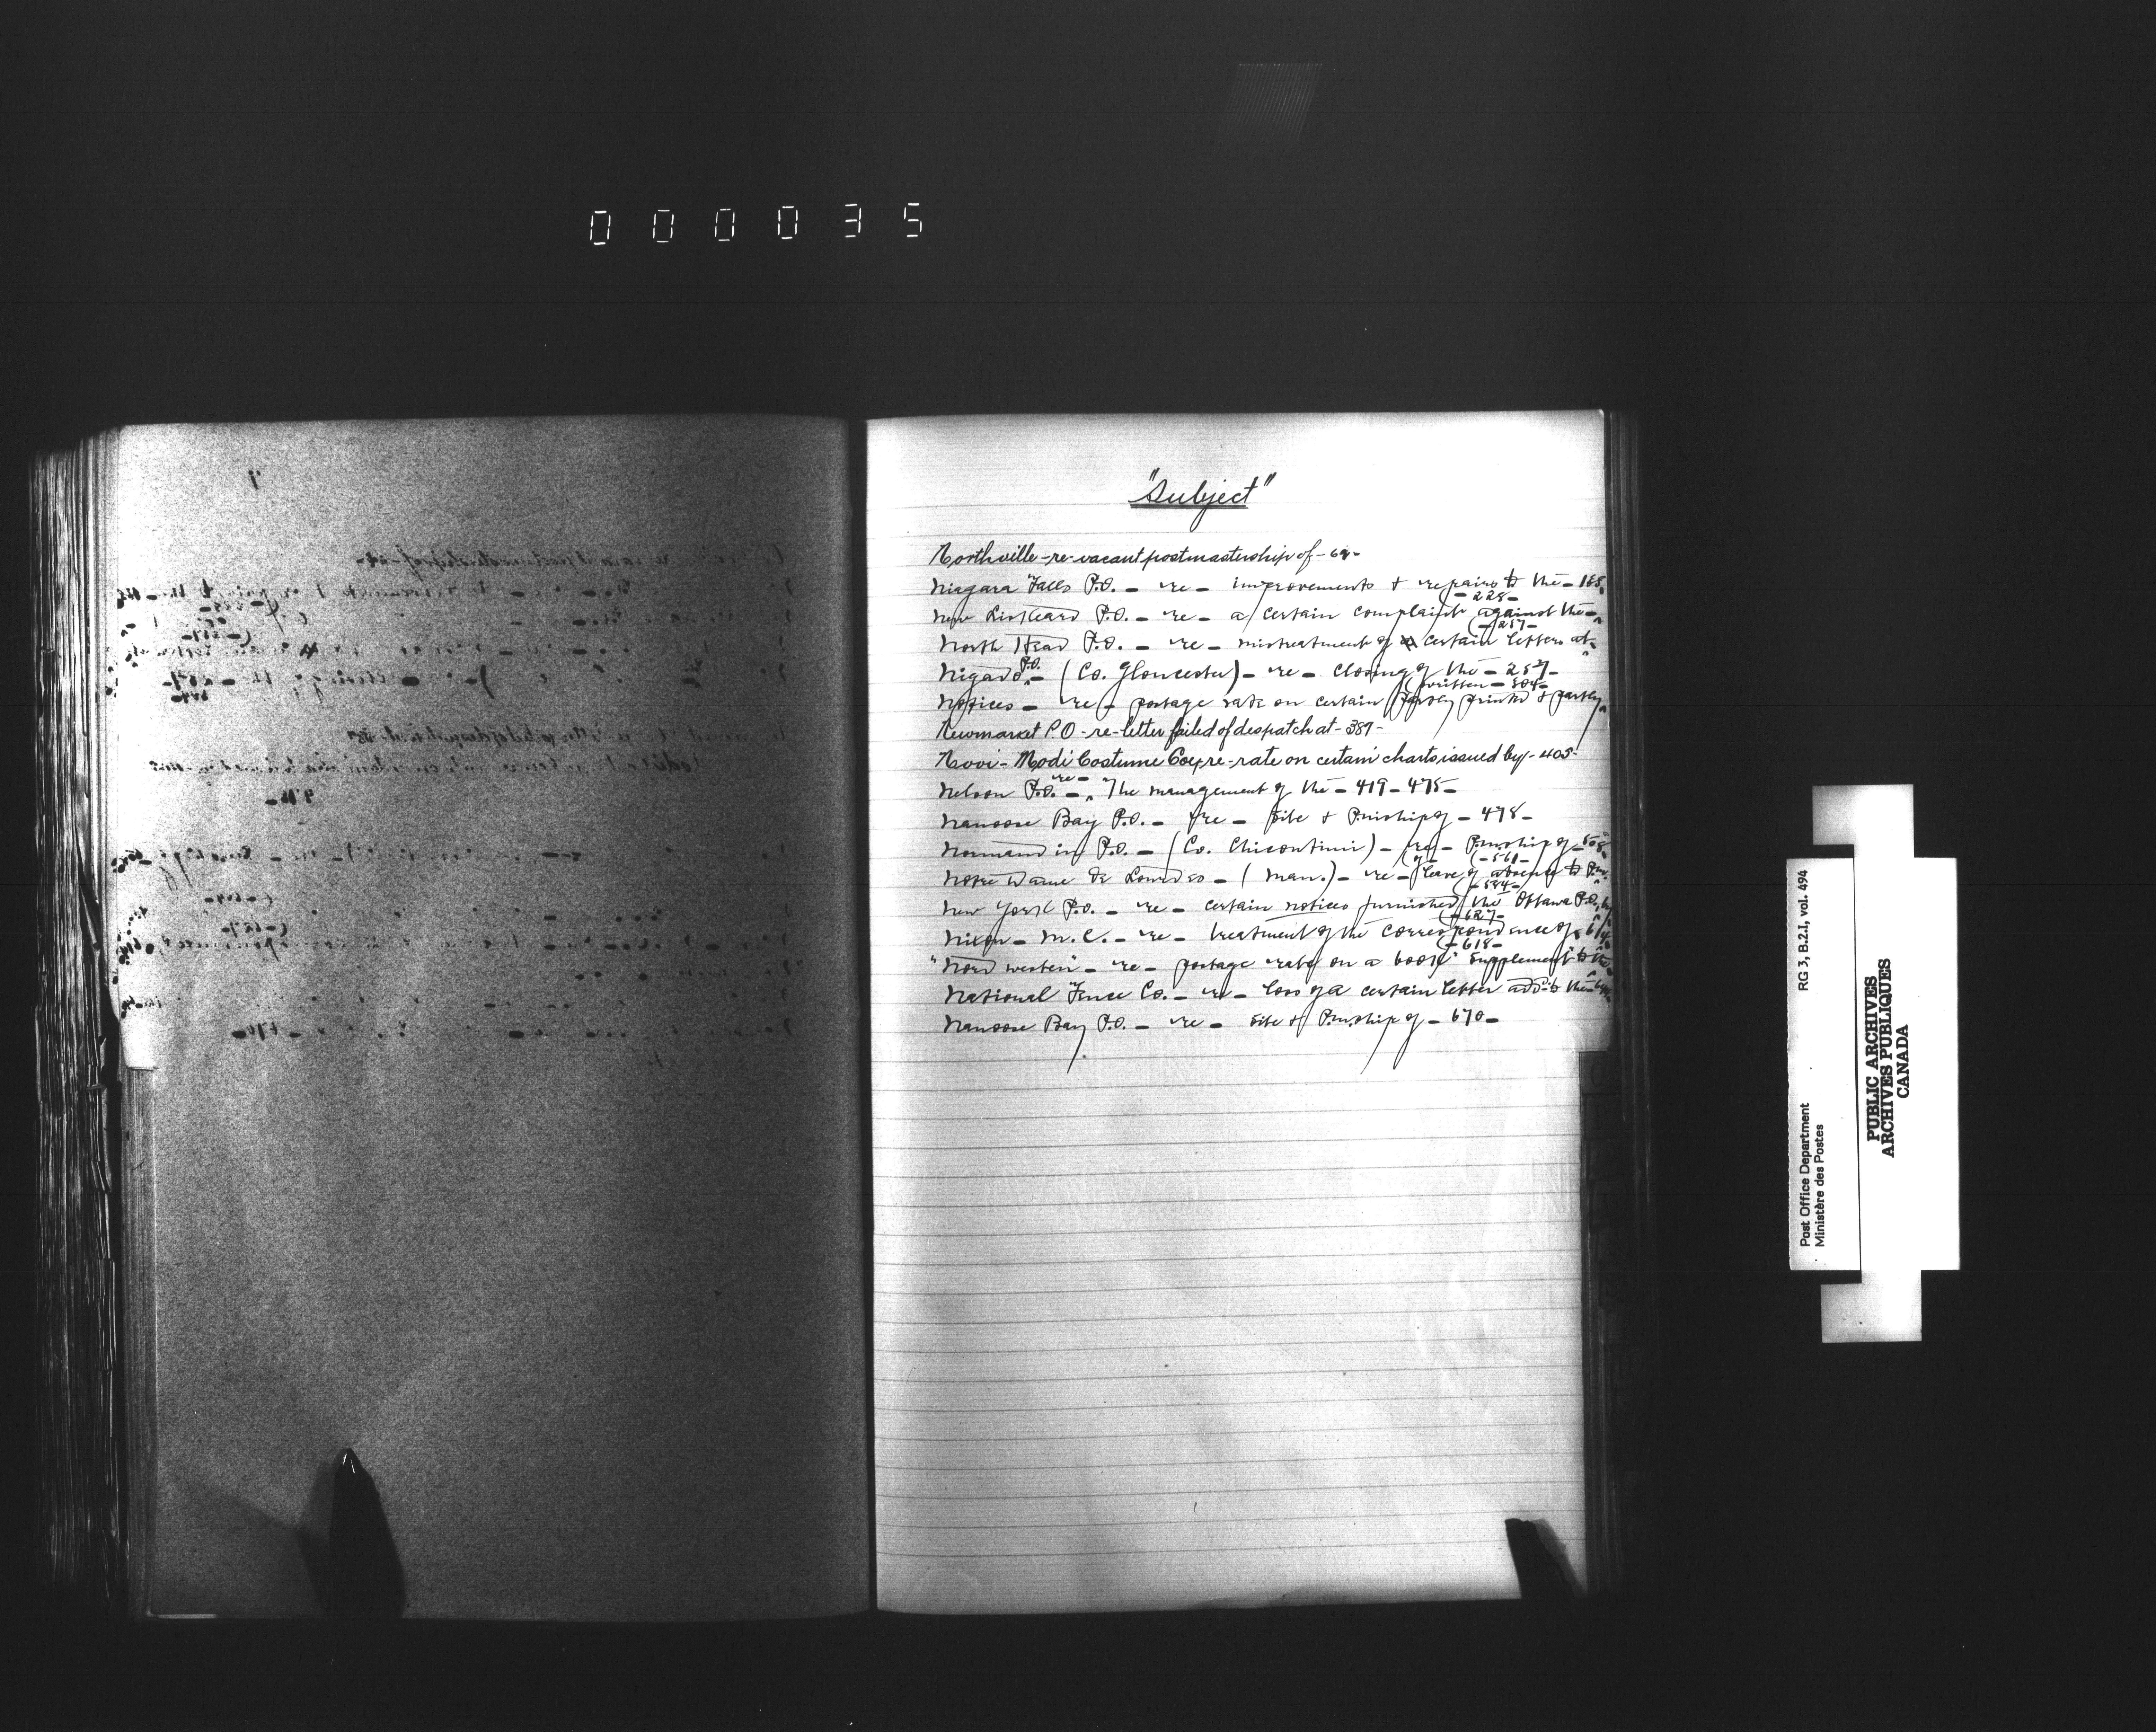 000035
"Subject"
Northville - re - vacant postmastership of - 69 -
Niagara Falls P.O. - re - improvements & repairs to the - 188
- 228 -
New Liskeard P.O. - re - a certain complaint against the -
- 257 -
North Head P.O. - re - mistreatment of certain letters at -
P.O.
Nigado - (Co. Gloucester) - re - closing of the - 257 -
written - 304 -
Notices - re - postage rate on certain partly printed & partly
Newmarket P.O - re - letter failed of despatch at - 387 -
Novi-Modi Costume Coy - re - rate on certain charts issued by - 405 -
re -
Nelson P.O. - The management of the - 419 - 475 -
Nanoose Bay P.O. - re - Site & Pmship of - 478 -
Normandin P.O. - (Co. Chicoutimi) - re - Pmship of - 508
- 561 -
Notre Dame de Lourdes - (Man.) - re - leave of absence to P.m.
- 584 -
New York P.O. - re - certain notices furnished the Ottawa P.O. by
- 627 -
Nixon - M.C. - re - treatment of the correspondence of - 614
- 618 -
"Nord western" - re - postage rate on a book "Supplement to the
National Fence Co. - re - loss of a certain letter add'd to the -
Nanoose Bay P.O. - re - Site & P.m.ship of - 670 -
Post Office Department
Ministère des Postes
RG 3, B.2.I, vol. 494
PUBLIC ARCHIVES
ARCHIVES PUBLIQUES
CANADA